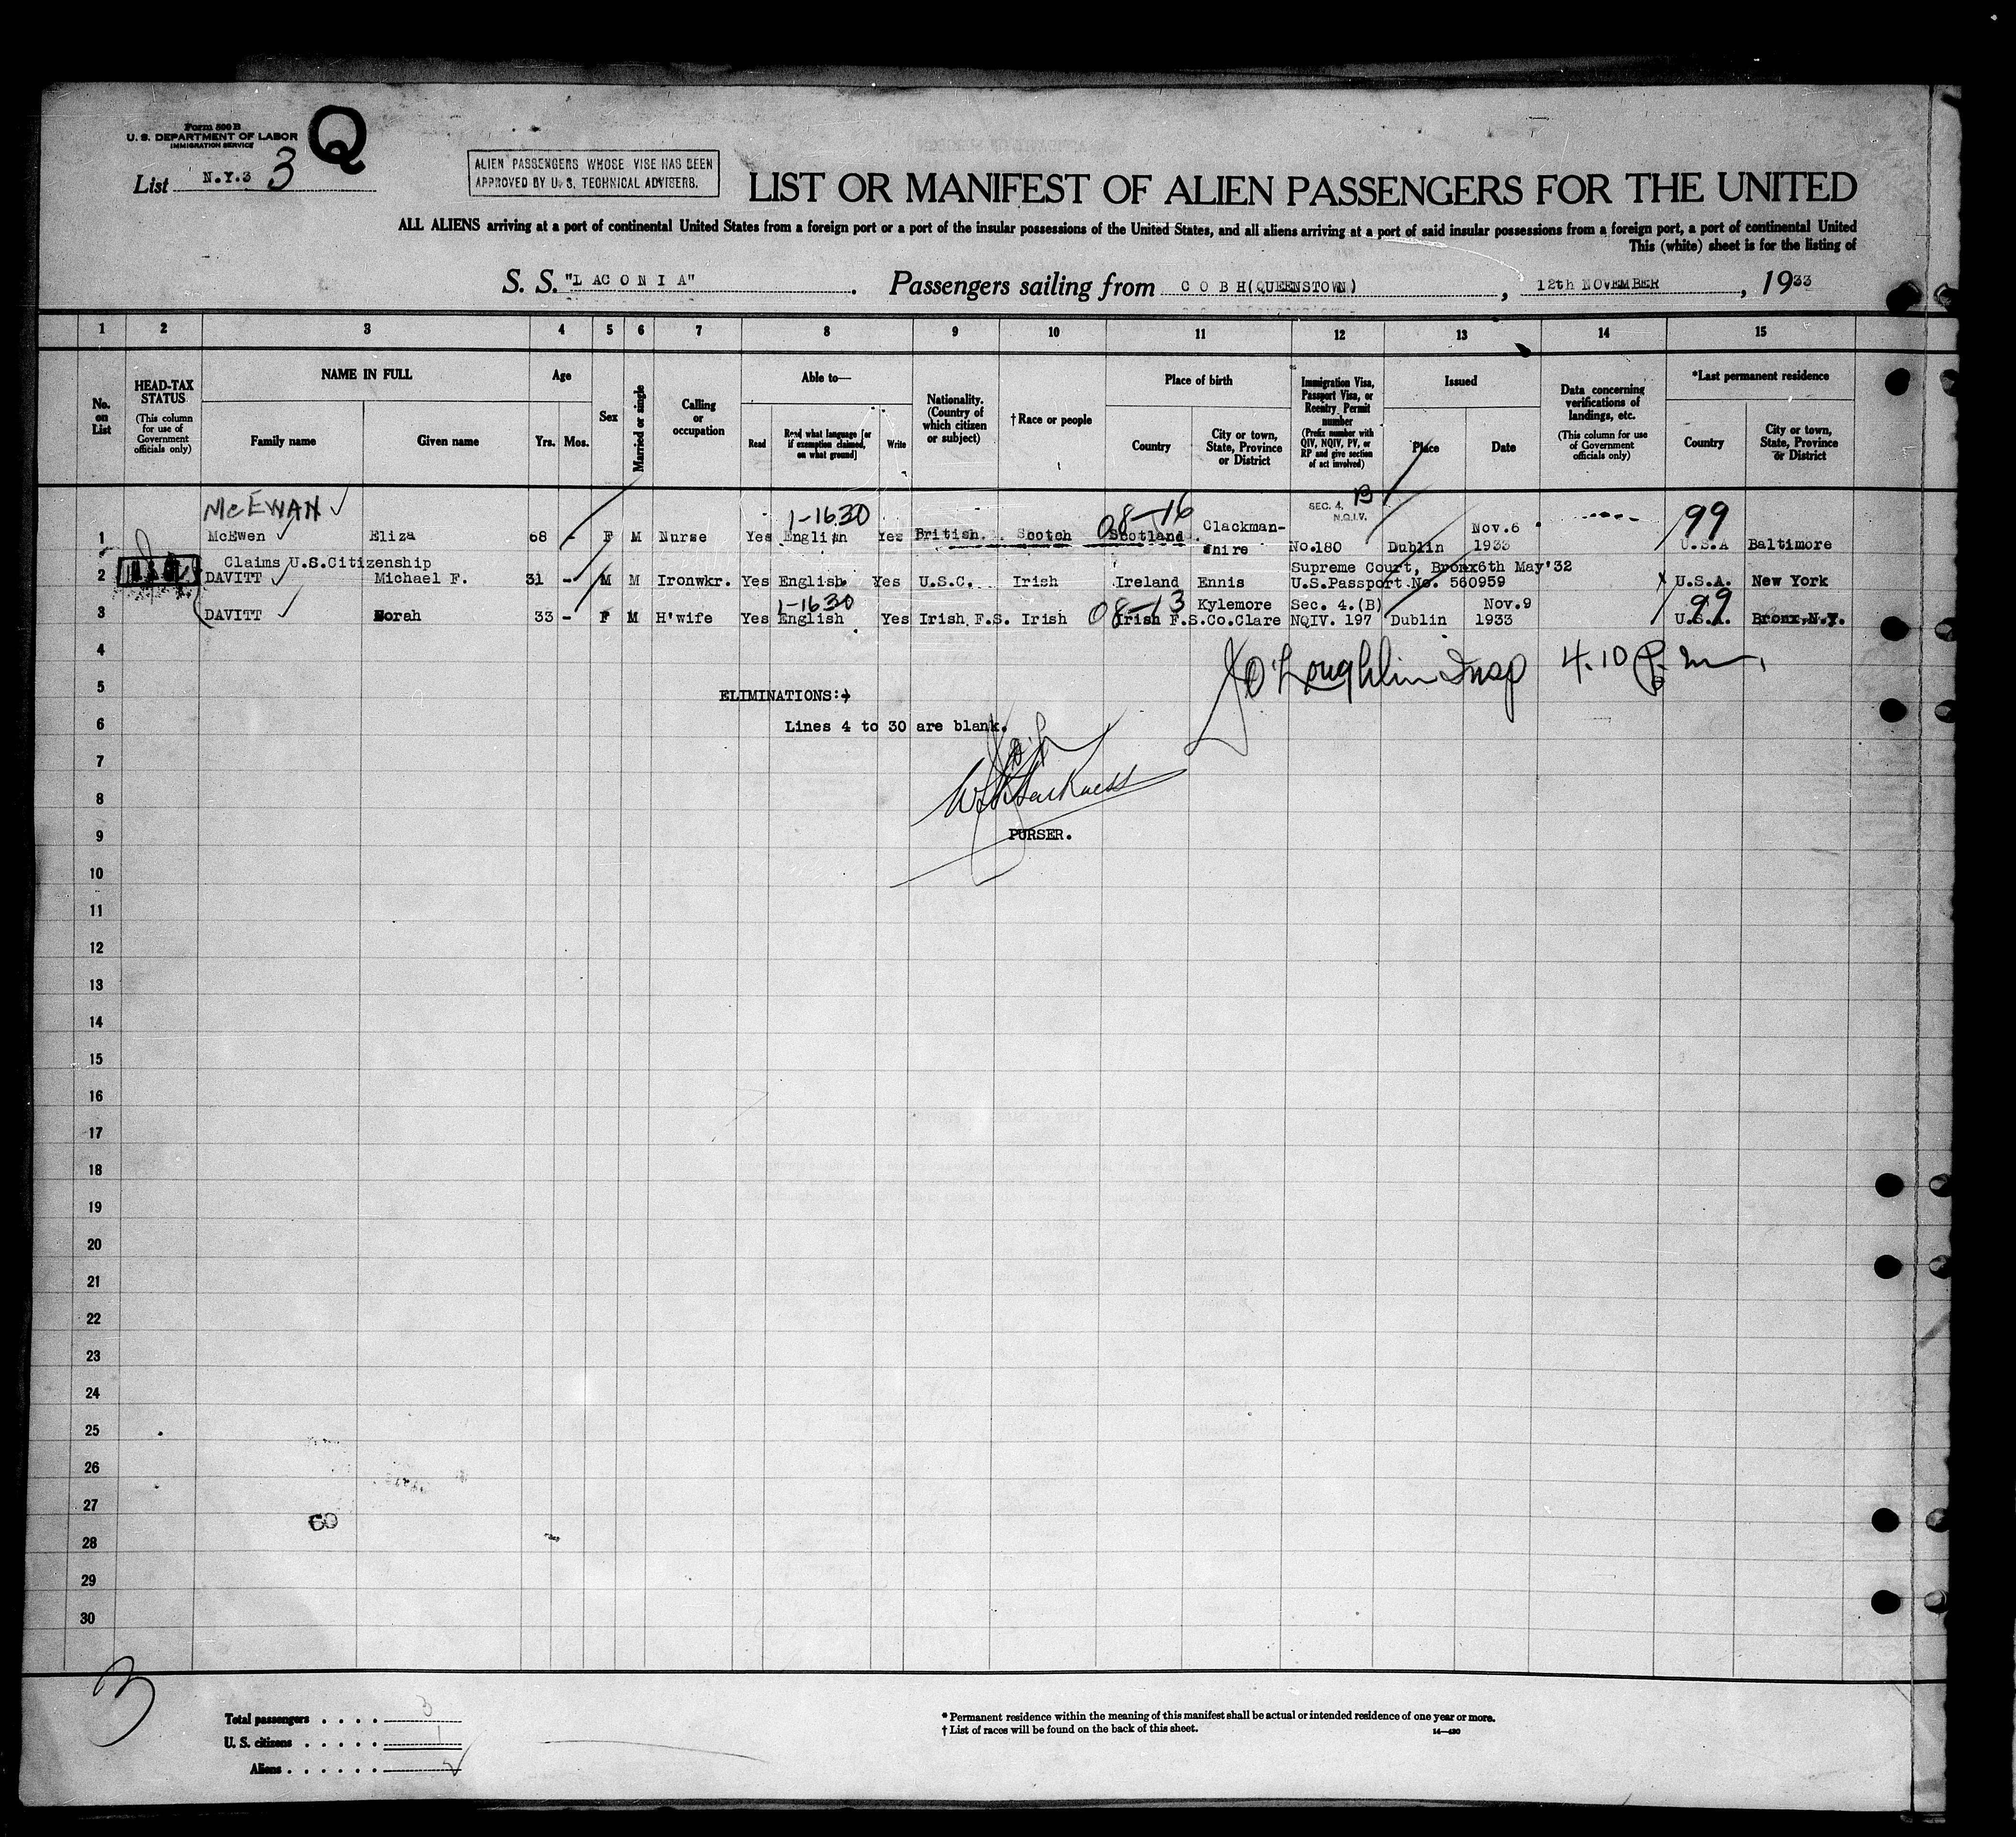 Form 500 B
U. S. DEPARTMENT OF LABOR
IMMIGRATION SERVICE
Q
List N.Y.3 3
ALIEN PASSENGERS WHOSE VISE HAS BEEN
APPROVED BY U. S. TECHNICAL ADVISERS.
LIST OR MANIFEST OF ALIEN PASSENGERS FOR THE UNITED
ALL ALIENS arriving at a port of continental United States from a foreign port or a port of the insular possessions of the United States, and all aliens arriving at a port of said insular possessions from a foreign port, a port of continental United
This (white) sheet is for the listing of
S. S. "L A C O N I A". Passengers sailing from C O B H (QUEENSTOWN), 12th NOVEMBER, 1933
1 2 3 4 5 6 7 8 9 10 11 12 13 14 15
No. on List
HEAD-TAX STATUS
(This column for use of Government officials only)
NAME IN FULL
Family name
Given name
Age
Yrs. Mos.
Sex
Married or single
Calling or occupation
Able to—
Read
Read what language [or if exemption claimed, on what ground]
Write
Nationality. (Country of which citizen or subject)
† Race or people
Place of birth
Country
City or town, State, Province or District
Immigration Visa, Passport Visa, or Reentry Permit number
(Prefix number with QIV, NQIV, PV, or RP and give section of act involved)
Issued
Place
Date
Data concerning verifications of landings, etc.
(This column for use of Government officials only)
*Last permanent residence
Country
City or town, State, Province or District
McEWAN 1-1630 08-16 SEC. 4. B N.Q.I.V. 99
1 McEwen Eliza 68 - F M Nurse Yes English Yes British. Scotch Scotland. Clackman-shire No.180 Dublin Nov.6 1933 U.S.A Baltimore
Claims U.S.Citizenship Supreme Court, Bronx 6th May'32
2 DAVITT Michael F. 31 - M M Ironwkr. Yes English Yes U.S.C. Irish Ireland Ennis U.S.Passport No. 560959 U.S.A. New York
1-1630 08-13 Kylemore Sec. 4.(B) Nov.9 99
3 DAVITT Norah 33 - F M H'wife Yes English Yes Irish F.S. Irish Irish F.S. Co.Clare NQIV. 197 Dublin 1933 U.S.A. Bronx, N.Y.
4
O'Loughlin Insp 4.10 P.m.
5 ELIMINATIONS:-
6 Lines 4 to 30 are blank.
7
8
9 PURSER.
10
11
12
13
14
15
16
17
18
19
20
21
22
23
24
25
26
27
60
28
29
30
3
Total passengers . . . . 3
U. S. citizens . . . . . 1
Aliens . . . . . .
* Permanent residence within the meaning of this manifest shall be actual or intended residence of one year or more.
† List of races will be found on the back of this sheet.
14—430